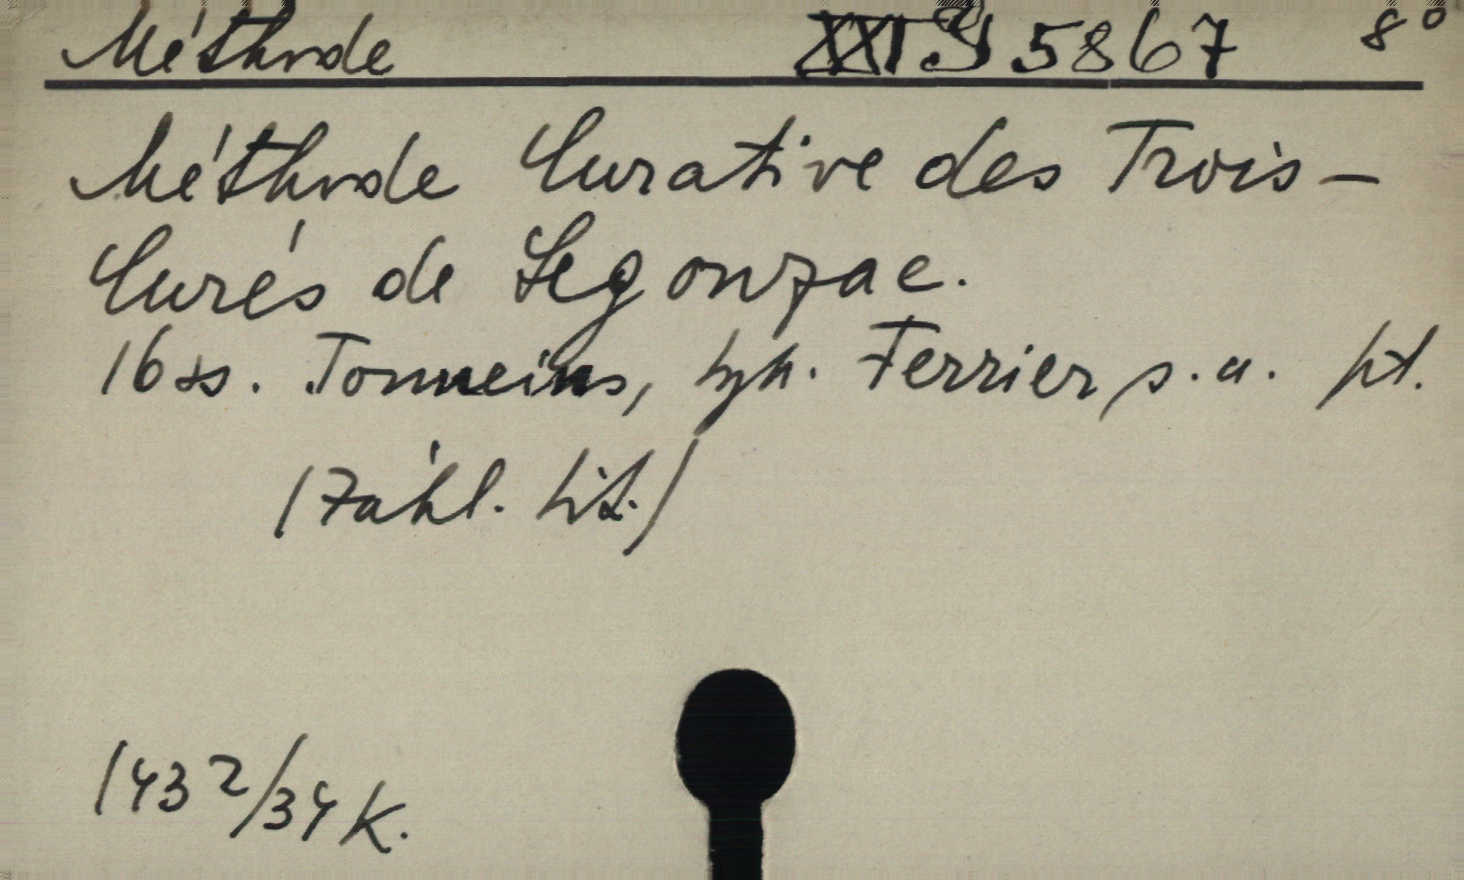 Méthode XXI 5867 8°
Méthode Curative des Trois-
Curés de Segonzac.
16 ss. Tonneins, typ. Ferrier, s. a. pt.
/Záhl. lit./
1432/34 K.